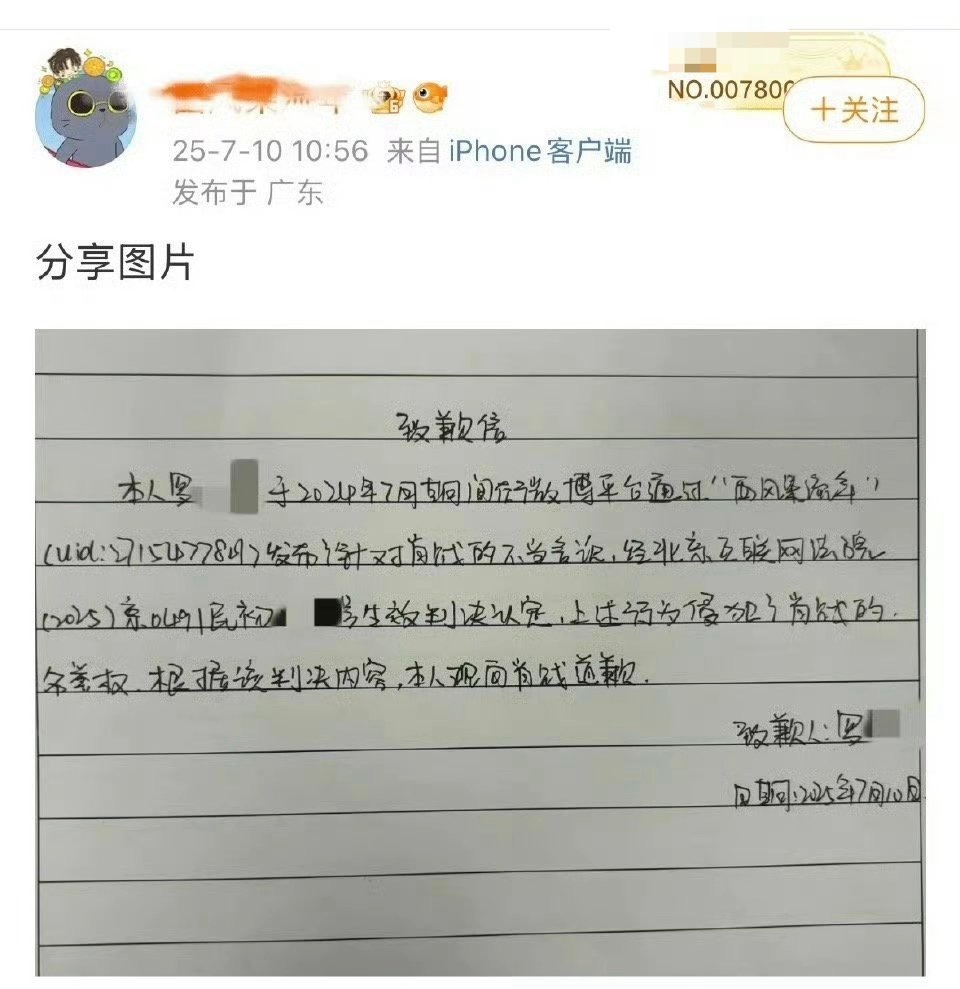 NO.007800
+关注
25-7-10 10:56 来自 iPhone客户端
发布于 广东
分享图片
致歉信
本人罗 于2024年7月期间在微博平台通过“西风渠流年”
(uid:2715477849)发布针对肖战的不当言论,经北京互联网法院
(2025)京0491民初 号生效判决认定,上述行为侵犯了肖战的
名誉权.根据该判决内容,本人现向肖战道歉.
致歉人:罗
日期:2025年7月10日